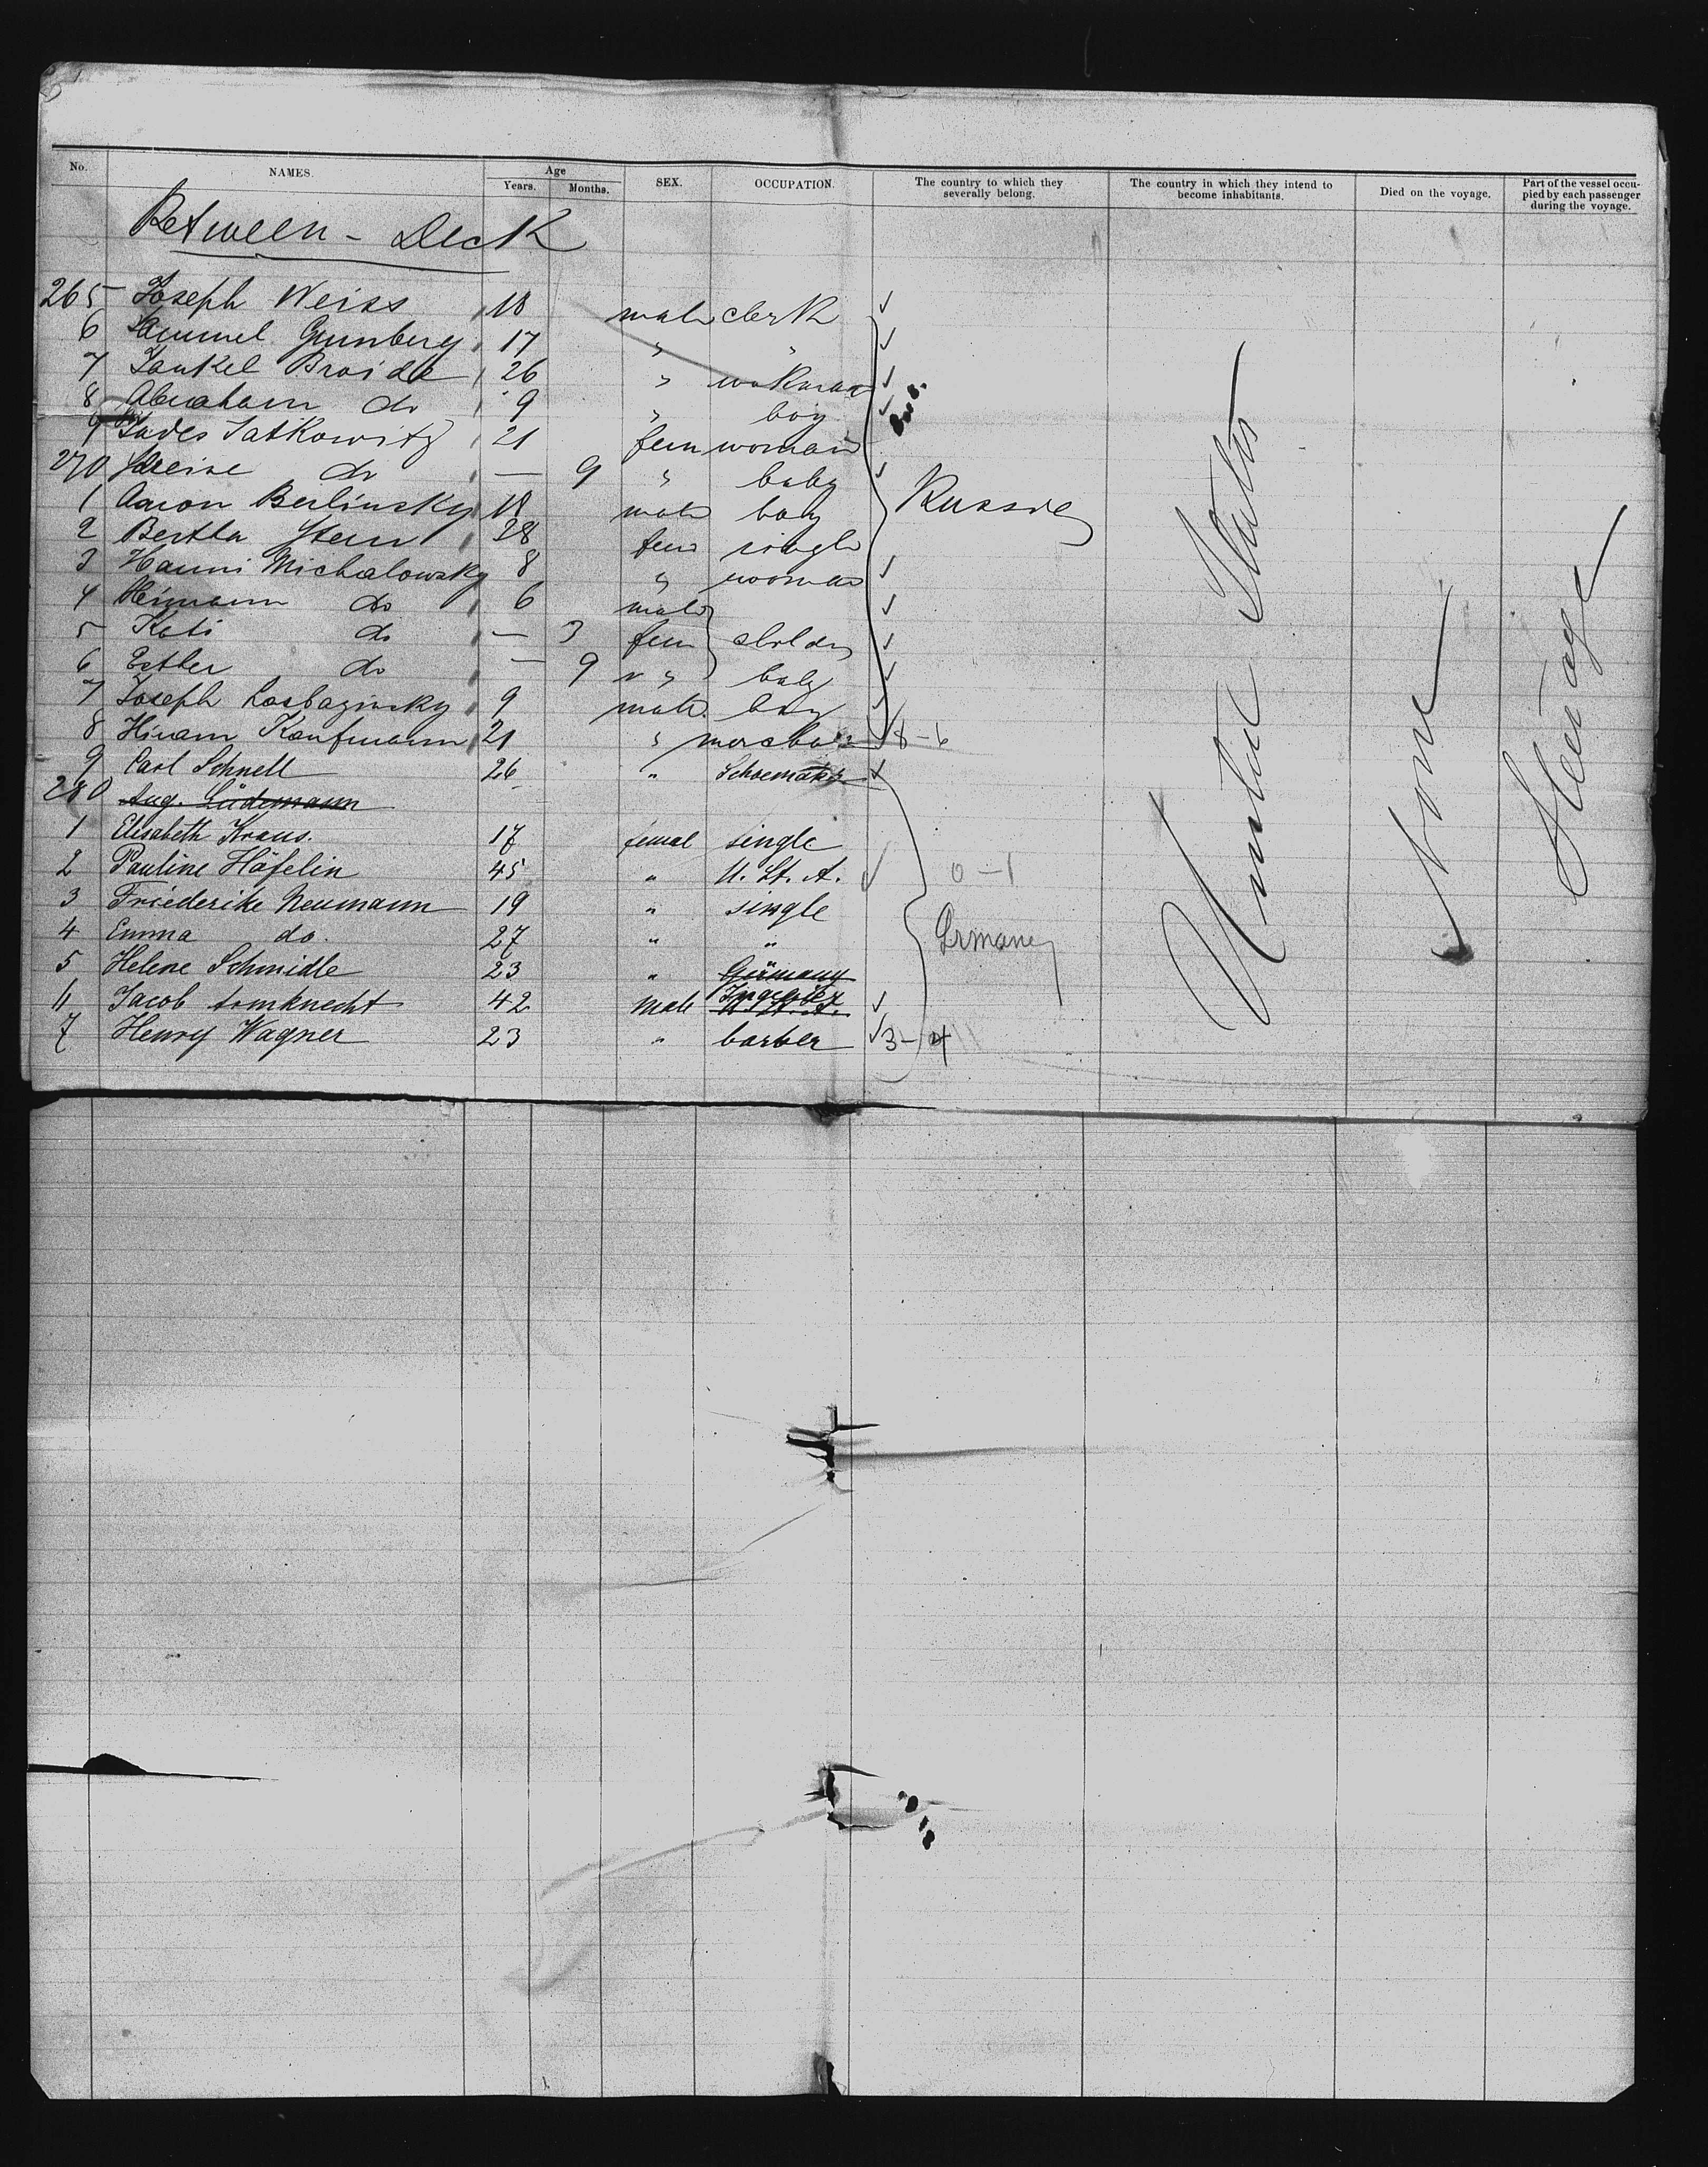 No. NAMES. Age Years. Months. SEX. OCCUPATION. The country to which they severally belong. The country in which they intend to become inhabitants. Died on the voyage. Part of the vessel occupied by each passenger during the voyage.
Between - Deck
265 Joseph Weiss 18 male clerk
6 Sammel Grunberg 17 " "
7 Jankel Broida 26 "
8 Abraham do 9 " boy
9 Satkowitz 21 fem woman
270 do — 9 " baby
1 Aaron Berlinsky 18 male boy Russia
2 Bertha Stern 28 fem single
3 Hanni Michalowsky 8 " woman
4 Heimann do 6 male
5 Kati do — 3 fem
6 Esther do — 9 " baby
7 Joseph 9 male boy
8 Hiram Kaufmann 21 " 8-6
9 Carl Schnell 26 " Schoemaker
280 Aug. Lüdemann
1 Elisabeth Kraus. 17 femal single
2 Pauline Häfelin 45 " U. St. A. 0-1
3 Friederike Neumann 19 " single
4 Emma do. 27 " " Germany
5 Helene Schmidle 23 " Germany
Jacob 42 male U. St. A.
7 Henry Wagner 23 " barber 3-4
United States
None
Steerage